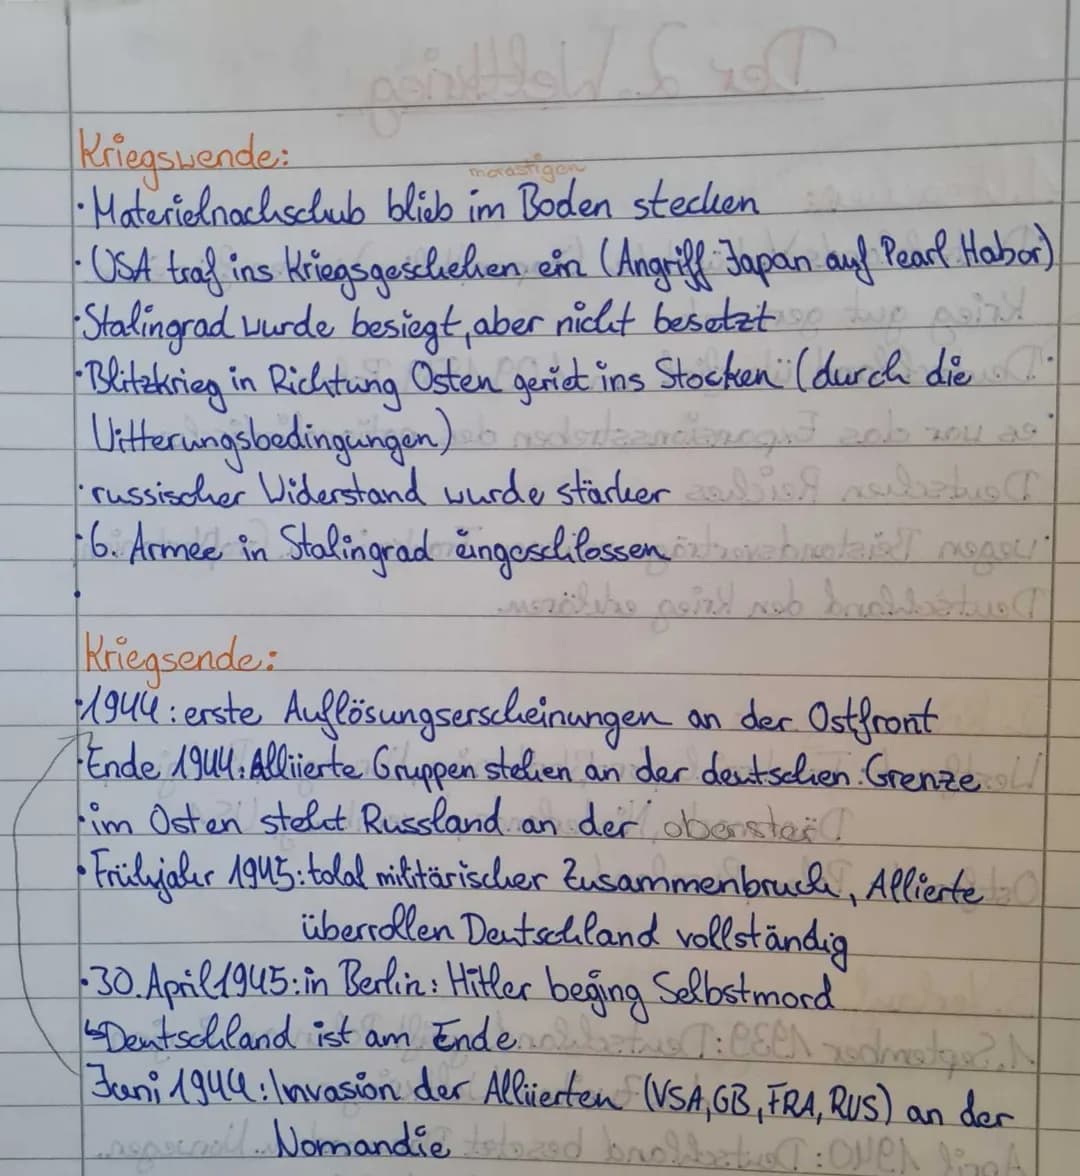 Kriegswende:
morastigen
· Materielnachschub blieb im Boden stecken
· USA traf ins Kriegsgeschehen ein (Angriff Japan auf Pearl Habor)
· Stalingrad wurde besiegt, aber nicht besetzt
· Blitzkrieg in Richtung Osten geriet ins Stocken (durch die
Witterungsbedingungen)
· russischer Widerstand wurde stärker
· 6. Armee in Stalingrad eingeschlossen
·
Kriegsende:
· 1944: erste Auflösungserscheinungen an der Ostfront
· Ende 1944: Alliierte Gruppen stehen an der deutschen Grenze
· im Osten steht Russland an der
· Frühjahr 1945: total militärischer Zusammenbruch, Allierte
überrollen Deutschland vollständig
· 30. April 1945: in Berlin: Hitler beging Selbstmord
↳ Deutschland ist am Ende
Juni 1944: Invasion der Alliierten (USA, GB, FRA, RUS) an der
Nomandie